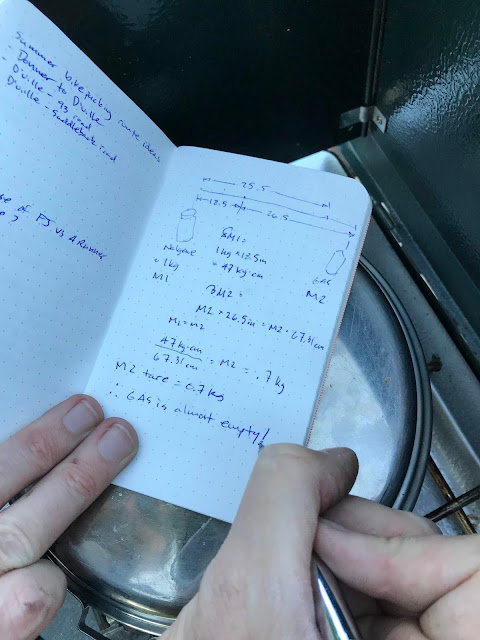 Summer bikepacking route ideas
- Donner to D'ville
- D'ville - 93 road
D'ville - Saddleback road
of FJ vs 4Runner
25.5
26.5
Nalgene
= 1kg
M1
GAS
M2
= 47 kg·cm
M2 × 26.5in = M2 · 67.31cm
M1 = M2
47 kg·cm
67.31 cm
= M2 = .7 kg
M2 tare = 0.7 kg
∴ GAS is almost empty!